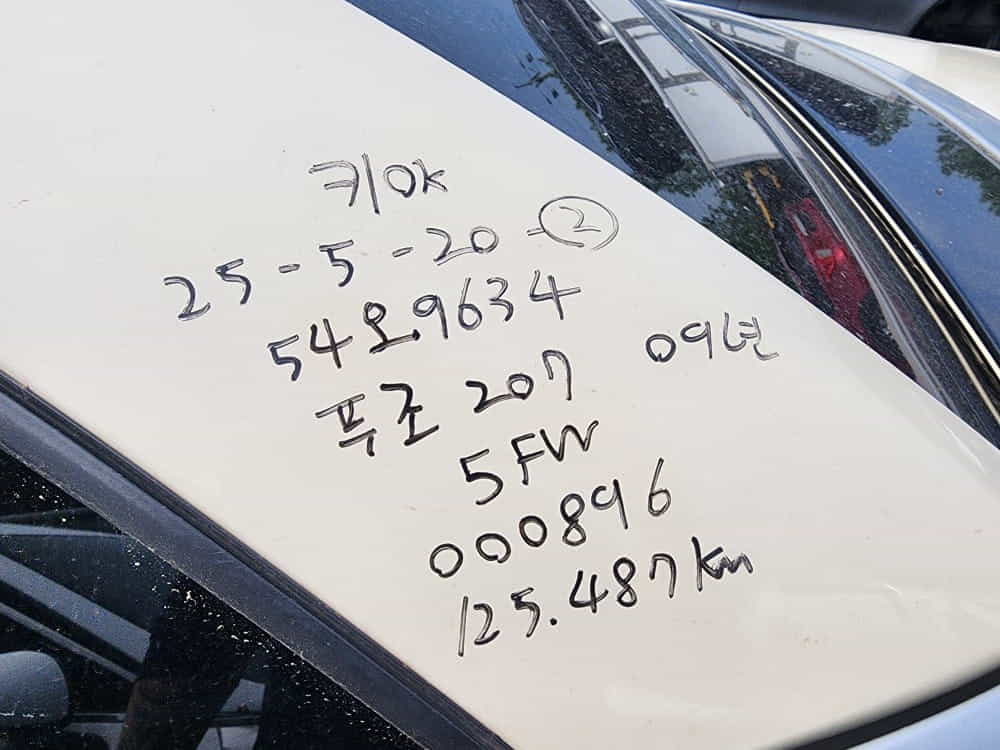 키OK
25-5-20-②
54오9634
푸조 207 09년
5FW
000896
125.487km